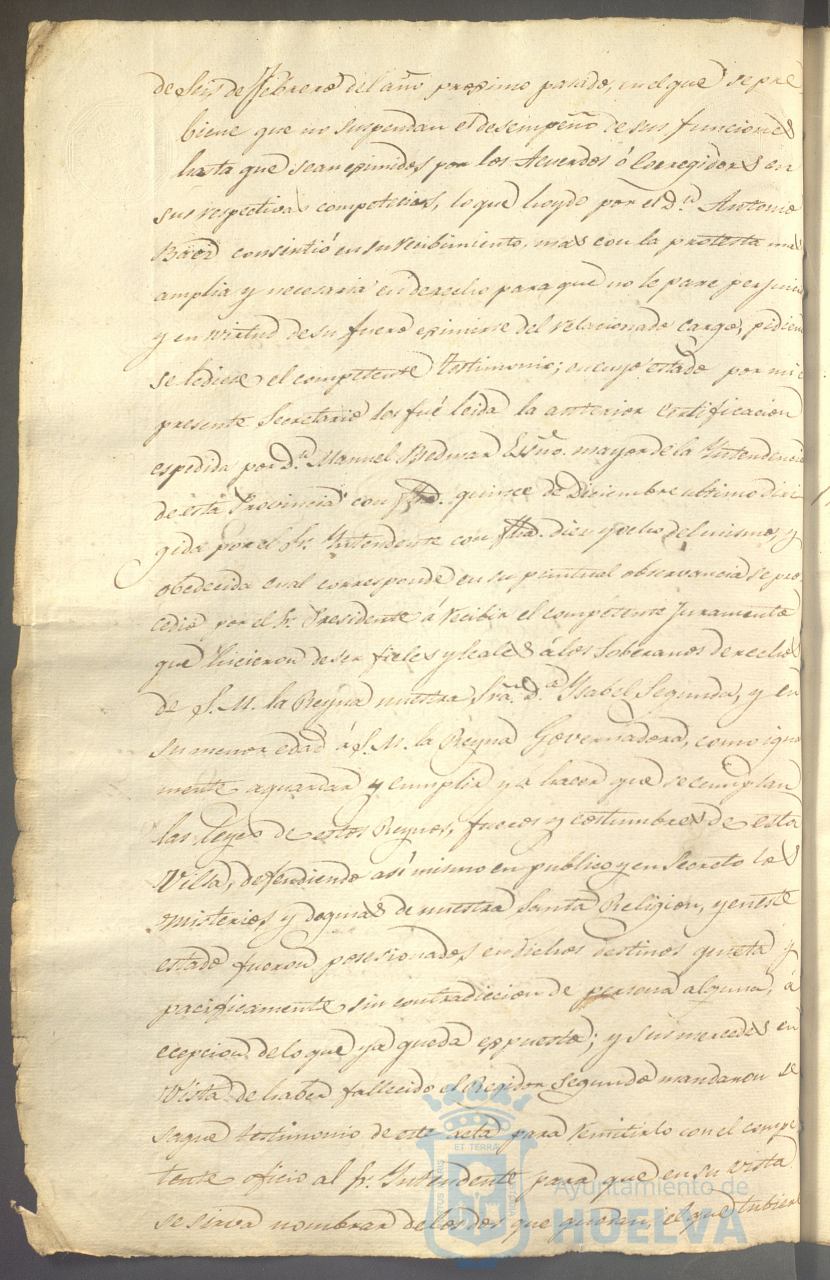 de Seis de Febrero del año proximo pasado, en el que se pre
biene que no suspendan el desempeño de sus funciones
hasta que sean eximidos por los Acuerdos ó Corregidores en
sus respectivas competecias, lo que hoydo por el Dn. Antonio
Baez consintió en su recibimiento, mas con la protesta mas
amplia y necesaria en derecho para que no le pare perjuicio
y en virtud de su fuero eximirse del relacionado cargo, pidien
se le diese el competente testimonio; en cuyo estado por mi el
presente Secretario les fué leida la anterior Certificacion
espedida por Dn. Manuel Bedmar Essño. mayor de la Yntendencia
de esta Provincia con fha. quince de Diciembre ultimo diri
gida por el Sr. Yntendente con fha. diez y ocho del mismo, y
obedecida cual corresponde en su puntual observancia se pro
cedió por el Sr. Presidente á recibir el competente Juramento
que hicieron de ser fieles y leales á los Soberanos derechos
de S. M. la Reyna nuestra Sra. Da. Ysabel Segunda, y en
su menor edad á S. M. la Reyna Governadora, como igual
mente aguardar y cumplir y a hacer que se cumplan
las leyes de estos Reynos, fueros y costumbres de esta
Villa, defendiendo asi mismo en publico y en Secreto los
misterios y dogmas de nuestra Santa Religion, y en este
estado fueron posesionados en dichos destinos quieta y
pacificamente sin contradiccion de persona alguna, á
ecepcion de lo que ya queda expuesto; y sus mercedes en
vista de haber fallecido el Regidor Segundo mandaron se
saque testimonio de este acta para remitirlo con el compe
tente oficio al Sr. Yntendente para que en su vista
se sirva nombrar de los dos que quedan, el que tubiere
Ayuntamiento de
HUELVA
ET TERRÆ